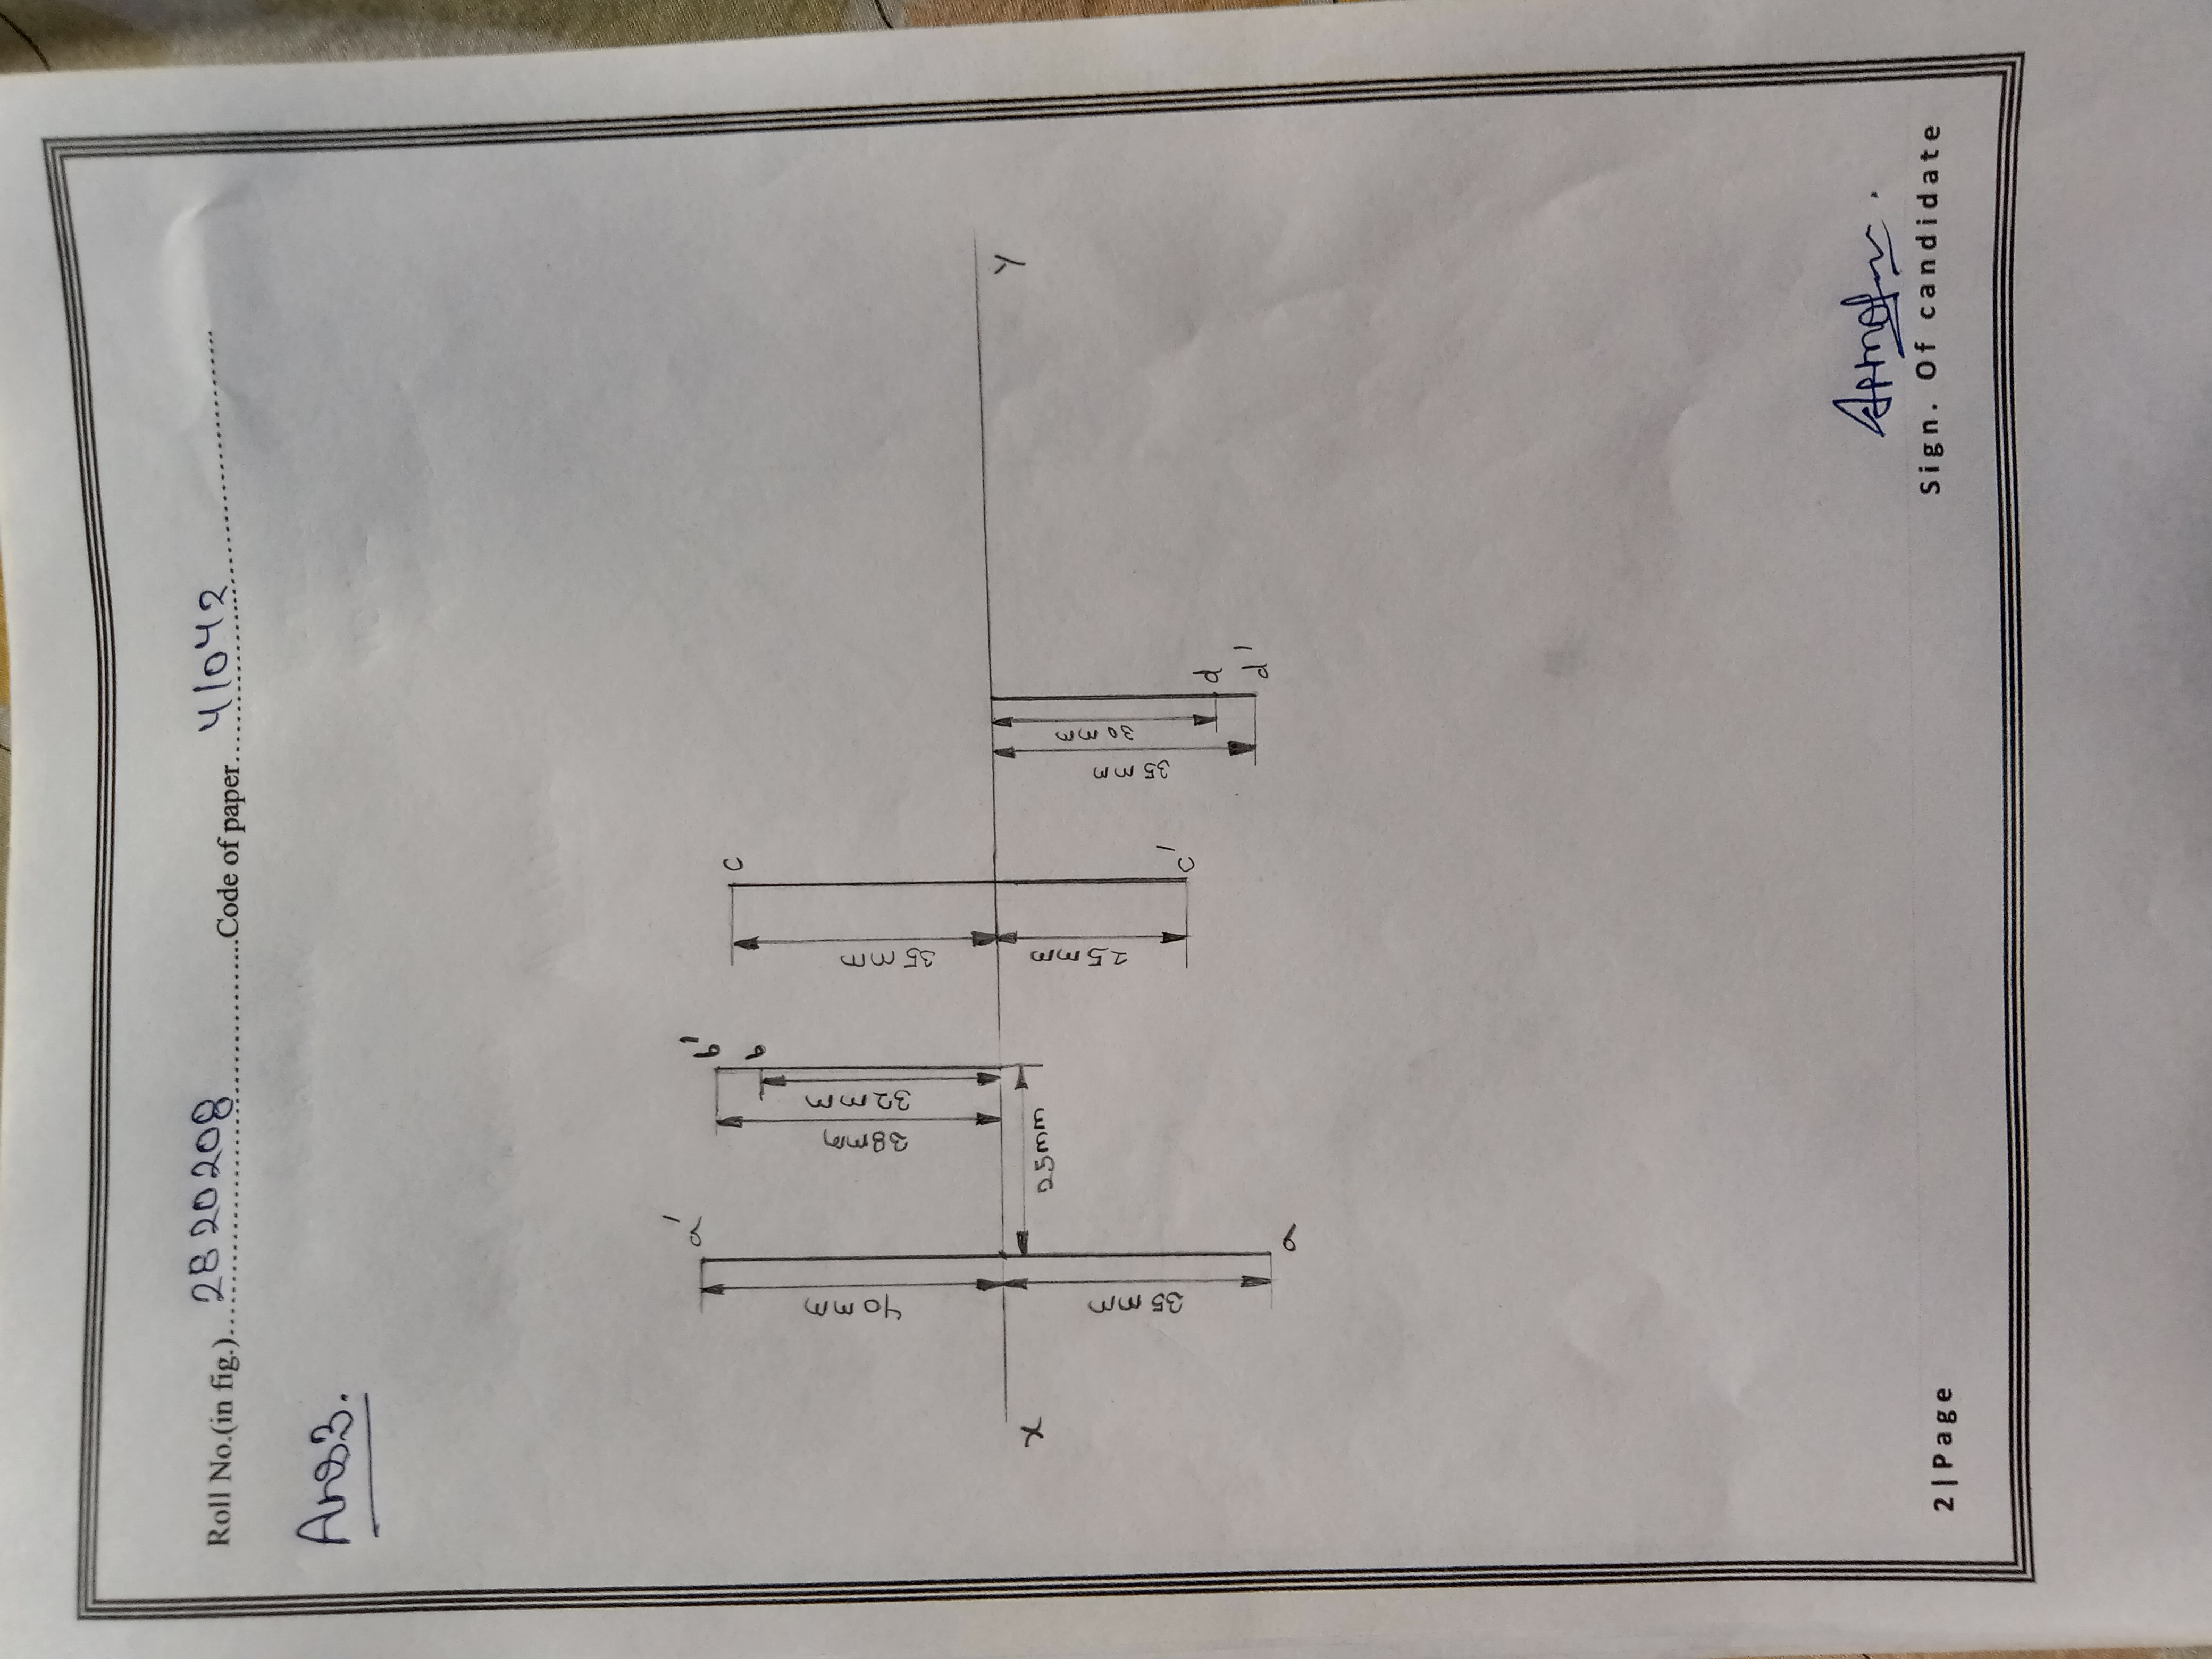 Roll No.(in fig.)....2820208....Code of paper...41042....
Ans3.
a' b' c
b
40mm 38mm 32mm 35mm
X Y
25mm
35mm 25mm 35mm 30mm
c' d
a d'
2|Page Sign. Of candidate